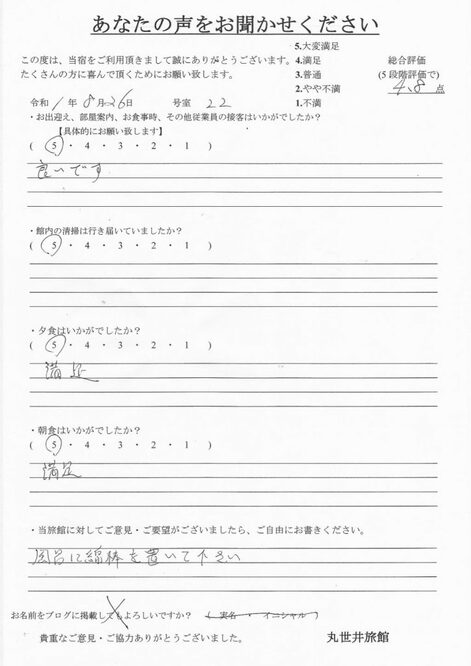 あなたの声をお聞かせください
5.大変満足
この度は、当宿をご利用頂きまして誠にありがとうございます。 4.満足 総合評価
たくさんの方に喜んで頂くためにお願い致します。 3.普通 (5段階評価で)
2.やや不満 4.8 点
令和 1 年 8 月 26 日 号室 22 1.不満
・お出迎え、部屋案内、お食事時、その他従業員の接客はいかがでしたか?
【具体的にお願い致します】
( 5 ・ 4 ・ 3 ・ 2 ・ 1 )
良いです
・館内の清掃は行き届いていましたか?
( 5 ・ 4 ・ 3 ・ 2 ・ 1 )
・夕食はいかがでしたか?
( 5 ・ 4 ・ 3 ・ 2 ・ 1 )
満足
・朝食はいかがでしたか?
( 5 ・ 4 ・ 3 ・ 2 ・ 1 )
満足
・当旅館に対してご意見・ご要望がございましたら、ご自由にお書きください。
風呂に綿棒を置いて下さい
お名前をブログに掲載してもよろしいですか? ( 実名 ・ イニシャル )
貴重なご意見・ご協力ありがとうございました。 丸世井旅館